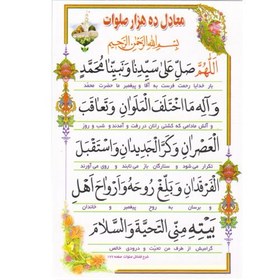 معادل ده هزار صلوات
بِسْمِ اللهِ الرَّحْمٰنِ الرَّحِيمِ
اَللّٰهُمَّ صَلِّ عَلىٰ سَيِّدِنا وَنَبِيِّنا مُحَمَّدٍ
بار خدایا رحمت فرست به آقا و پیغمبر ما حضرت محمّد
وَآلِهِ مَا اخْتَلَفَ الْمَلَوانِ وَتَعاقَبَ
و آلش مادامی که گشتی زنان در رفت و آمدند و شب و روز
الْعَصْرانِ وَكَرَّ الْجَديدانِ وَاسْتَقْبَلَ
تکرار می شود و ستارگان باز می تابند و روی می آورند
الْفَرْقَدانِ وَبَلِّغْ رُوحَهُ وَاَرْواحَ اَهْلِ
و برسان به روح پیغمبر و خاندان
بَيْتِهِ مِنِّى التَّحِيَّةَ وَالسَّلامَ
گرامیش از طرف من تحیّت و درودی خالص